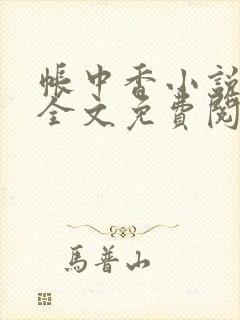 帳中香小說
全文免費閱
馬普山